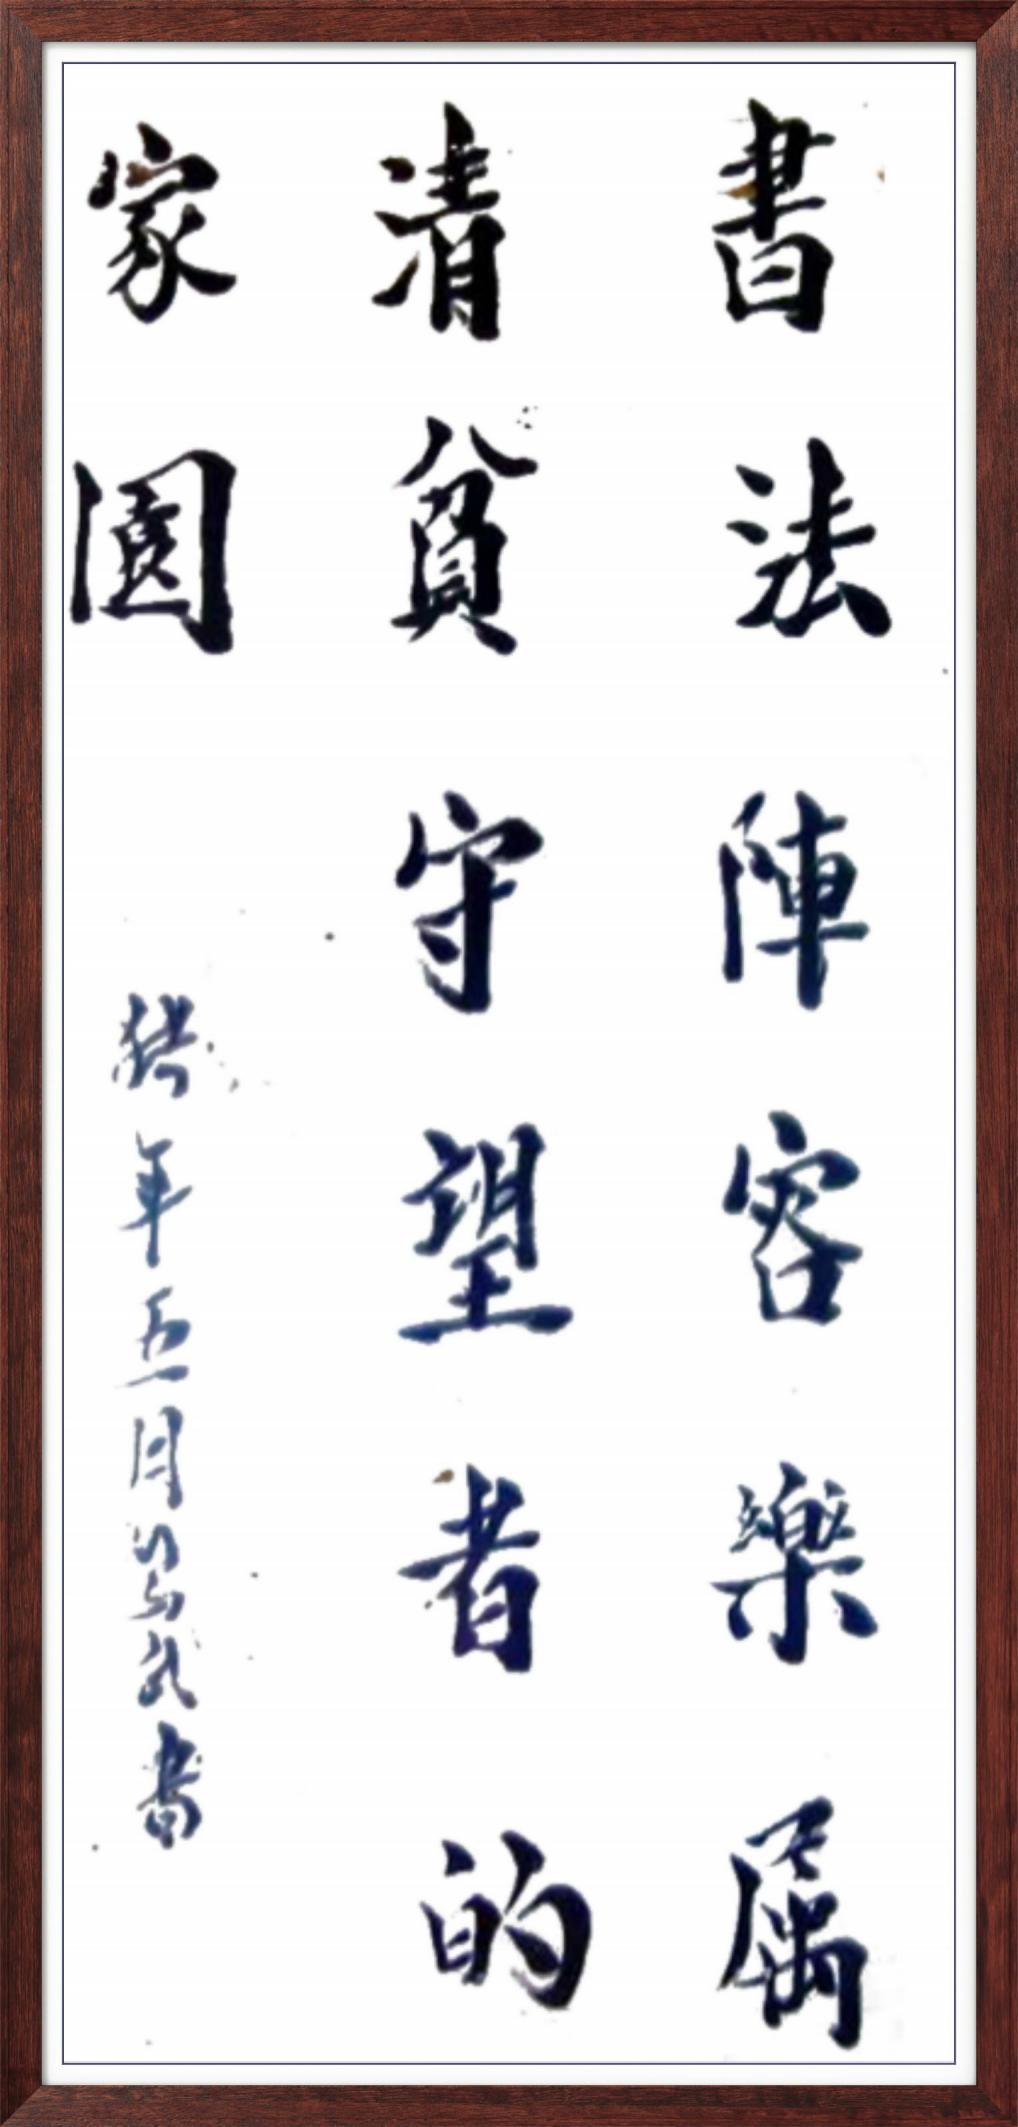 書法陣容樂屬
清貧守望者的
家園
猪年五月 書